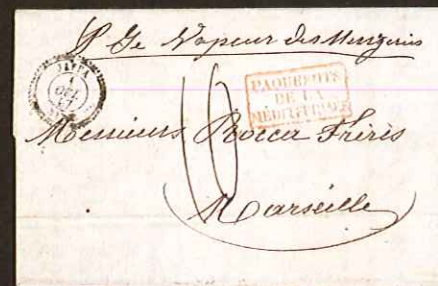 Vapeur des Messageries
JAFFA
1
OCT
57
PAQUEBOTS
DE LA
MÉDITERRANÉE
Messieurs Rocca Frères
16
Marseille